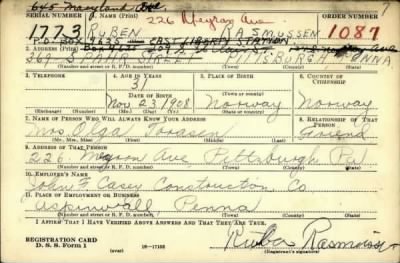 645 Maryland Ave
SERIAL NUMBER 1. NAME (Print) 226 Meyran Ave ORDER NUMBER
1773 RUBEN RASMUSSEN 1087
P.O. BOX EAST LIBERTY STATION
2. ADDRESS (Print)
369 SPAHR STREET PITTSBURGH PENNA
(Number and street or R. F. D. number) (Town) (County) (State)
3. TELEPHONE 4. AGE IN YEARS 5. PLACE OF BIRTH 6. COUNTRY OF CITIZENSHIP
31 Norway Norway
DATE OF BIRTH
Nov 23 1908
(Exchange) (Number) (Mo.) (Day) (Yr.) (State or country)
7. NAME OF PERSON WHO WILL ALWAYS KNOW YOUR ADDRESS 8. RELATIONSHIP OF THAT PERSON
Mrs Olga Friend
(Mr., Mrs., Miss) (First) (Middle) (Last)
9. ADDRESS OF THAT PERSON
226 Meyran Ave Pittsburgh Pa
(Number and street or R. F. D. number) (Town) (County) (State)
10. EMPLOYER'S NAME
John F. Casey Construction Co
11. PLACE OF EMPLOYMENT OR BUSINESS
Aspinwall, Penna
(Number and street or R. F. D. number) (Town) (County) (State)
I AFFIRM THAT I HAVE VERIFIED ABOVE ANSWERS AND THAT THEY ARE TRUE.
REGISTRATION CARD
D. S. S. Form 1 16-17105 Ruben Rasmussen